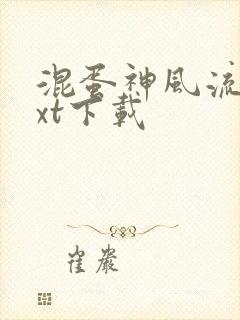 混蛋神風流
xt下載
崔嚴